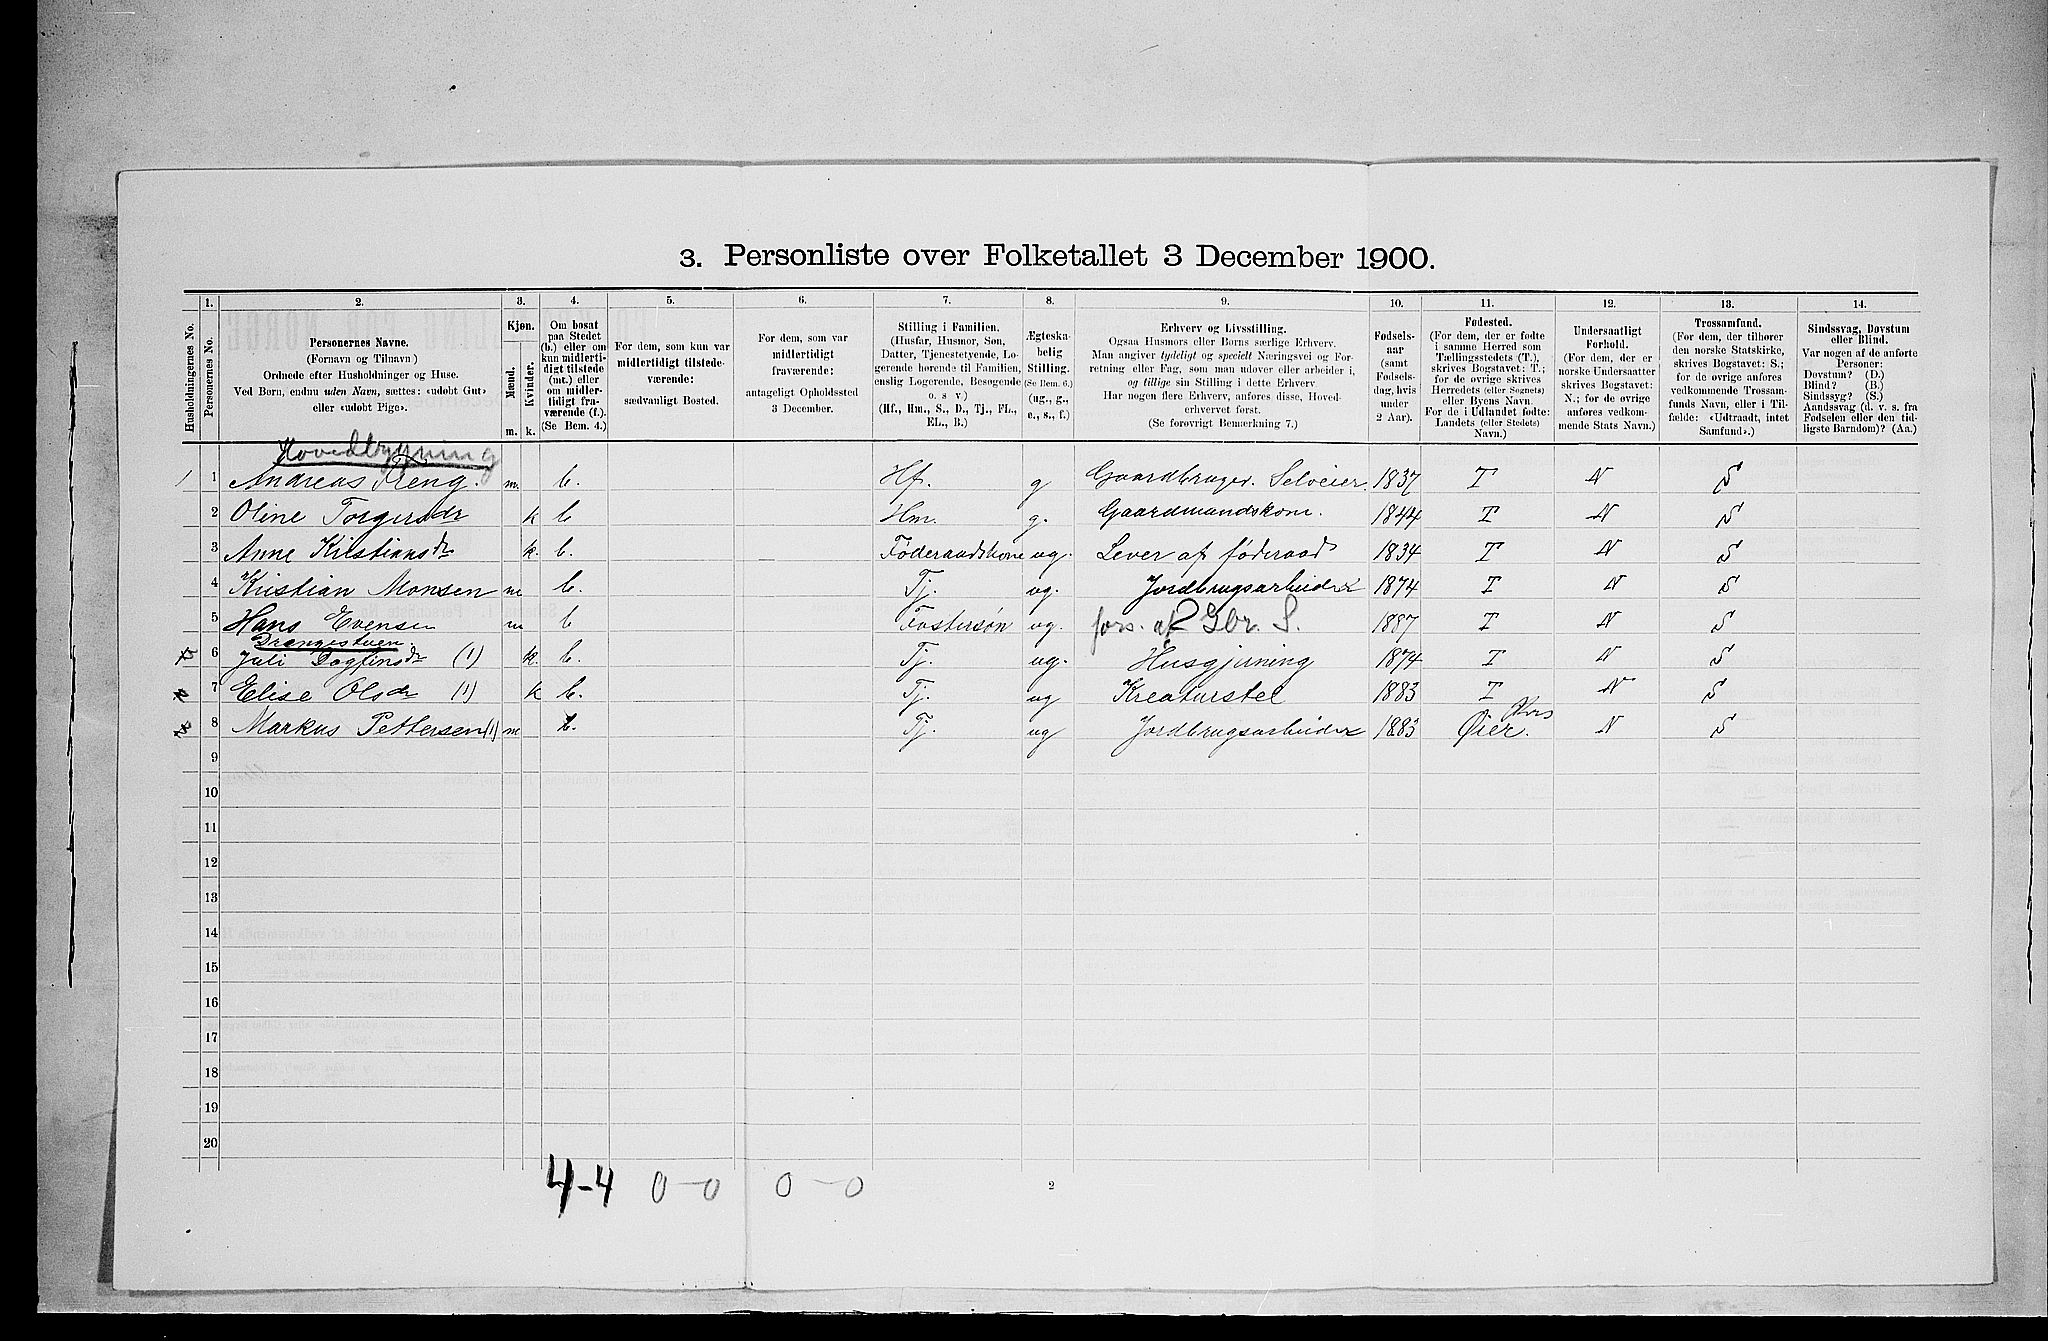 3. Personliste over Folketallet 3 December 1900.
1. 2. 3. 4. 5. 6. 7. 8. 9. 10. 11. 12. 13. 14.
Husholdningernes No.
Personernes No.
Personernes Navne.
(Fornavn og Tilnavn)
Ordnede efter Husholdninger og Huse.
Ved Børn, endnu uden Navn, sættes: «udøbt Gut»
eller «udøbt Pige».
Kjøn.
Mænd.
Kvinder.
m. k.
Om bosat
paa Stedet
(b.) eller om
kun midlerti-
digt tilstede
(mt.) eller
om midler-
tidigt fra-
værende (f.).
(Se Bem. 4.)
For dem, som kun var
midlertidigt tilstede-
værende:
sædvanligt Bosted.
For dem, som var
midlertidigt
fraværende:
antageligt Opholdssted
3 December.
Stilling i Familien.
(Husfar, Husmor, Søn,
Datter, Tjenestetyende, Lo-
gerende hørende til Familien,
enslig Logerende, Besøgende
o. s v.)
(Hf., Hm., S., D., Tj., FL.,
EL., B.)
Ægteska-
belig
Stilling.
(Se Bem. 6.)
(ug., g.,
e., s., f.)
Erhverv og Livsstilling.
Ogsaa Husmors eller Børns særlige Erhverv.
Man angiver tydeligt og specielt Næringsvei og For-
retning eller Fag, som man udøver eller arbeider i,
og tillige sin Stilling i dette Erhverv.
Har nogen flere Erhverv, anføres disse, Hoved-
erhvervet først.
(Se forøvrigt Bemærkning 7.)
Fødsels-
aar
(samt
Fødsels-
dag, hvis
under
2 Aar).
Fødested.
(For dem, der er fødte
i samme Herred som
Tællingsstedets (T.),
skrives Bogstavet: T.;
for de øvrige skrives
Herredets (eller Sognets)
eller Byens Navn.
For de i Udlandet fødte:
Landets (eller Stedets)
Navn.)
Undersaatligt
Forhold.
(For dem, der er
norske Undersaatter
skrives Bogstavet:
N.; for de øvrige
anføres vedkom-
mende Stats Navn.)
Trossamfund.
(For dem, der tilhører
den norske Statskirke,
skrives Bogstavet: S.;
for de øvrige anføres
vedkommende Trossam-
funds Navn, eller i Til-
fælde: «Udtraadt, intet
Samfund».)
Sindssvag, Døvstum
eller Blind.
Var nogen af de anførte
Personer:
Døvstum? (D.)
Blind? (B.)
Sindssyg? (S.)
Aandssvag (d. v. s. fra
Fødselen eller den tid-
ligste Barndom)? (Aa.)
Hovedbygning
1 1 Andreas Reng. m. b. Hf. g Gaardbruger. Selveier. 1837 T N S
2 Oline Torgersdr k b Hm. g. Gaardmandskone. 1844 T N S
3 Anne Kristiansdr k. b. Føderaadskone ug. Lever af føderaad 1834 T N S
4 Kristian Monsen m b. Tj. ug. Jordbrugsarbeider 1874 T N S
5 Hans Evensen m b Fostersøn ug. fors. af Gbr. S. 1887 T N S
Drængestuen.
6 Juli Dagfinsdr (1) k. b. Tj. ug. Husgjerning 1874 T N S
7 Elise Olsdr (1) k b. Tj. ug Kreaturstel 1883 T N S
8 Markus Pettersen (1) m b. Tj. ug Jordbrugsarbeider 1883 Øier. N S
9
10
11
12
13
14
15
16
17
18
19
20
4-4 0-0 0-0
2